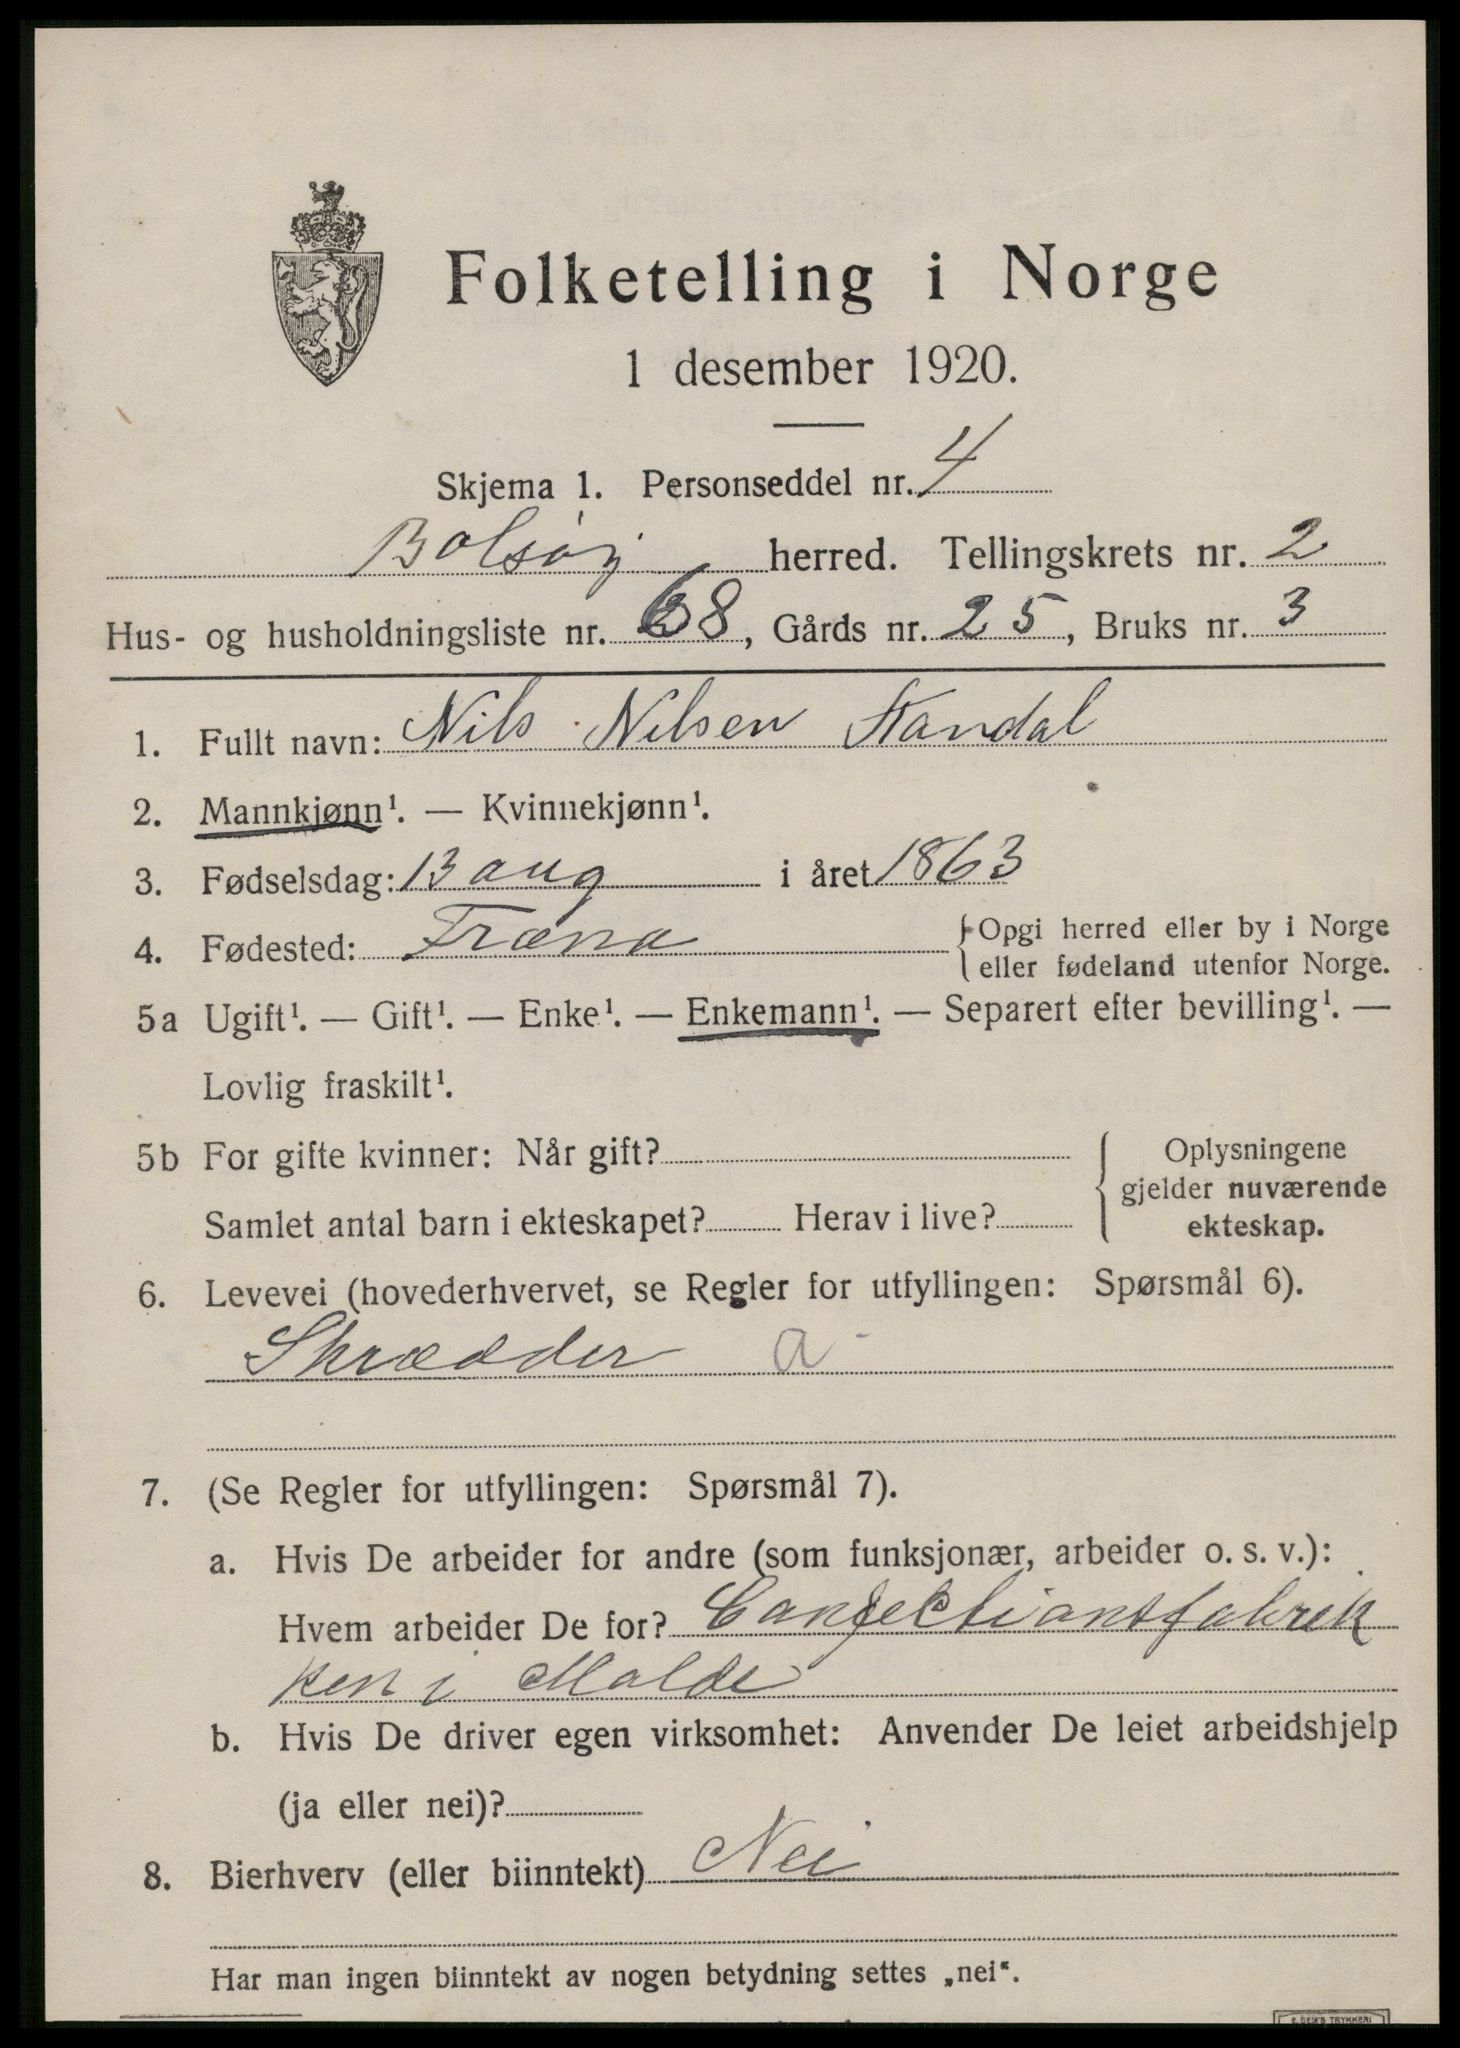 Folketelling i Norge
1 desember 1920.
Skjema 1. Personseddel nr. 4
Bolsøy herred. Tellingskrets nr. 2
Hus- og husholdningsliste nr. 68, Gårds nr. 25, Bruks nr. 3
1. Fullt navn: Nils Nilsen Standal
2. Mannkjønn¹. — Kvinnekjønn¹.
3. Fødselsdag: 13 aug i året 1863
4. Fødested: Fræna {Opgi herred eller by i Norge
eller fødeland utenfor Norge.
5a Ugift¹. — Gift¹. — Enke¹. — Enkemann¹. — Separert efter bevilling¹. —
Lovlig fraskilt¹.
5b For gifte kvinner: Når gift?
Samlet antal barn i ekteskapet? Herav i live?
Oplysningene
gjelder nuværende
ekteskap.
6. Levevei (hovederhvervet, se Regler for utfyllingen: Spørsmål 6).
Skrædder a
7. (Se Regler for utfyllingen: Spørsmål 7).
a. Hvis De arbeider for andre (som funksjonær, arbeider o. s. v.):
Hvem arbeider De for? Confectionsfabrik
ken i Molde
b. Hvis De driver egen virksomhet: Anvender De leiet arbeidshjelp
(ja eller nei)?
8. Bierhverv (eller biinntekt) Nei
Har man ingen biinntekt av nogen betydning settes „nei“.
E. SEM'S TRYKKERI